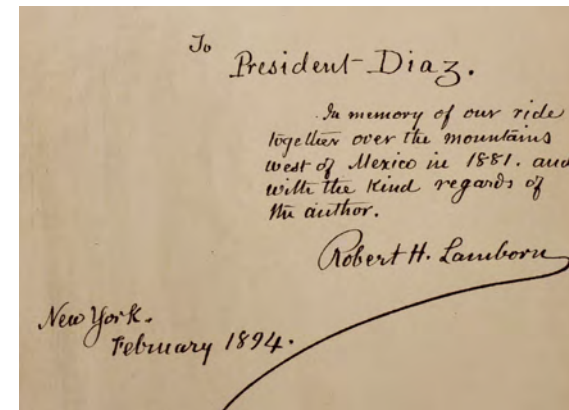 To
President Diaz.
In memory of our ride
together over the mountains
west of Mexico in 1881. and
with the kind regards of
the author.
Robert H. Lamborn
New York.
February 1894.